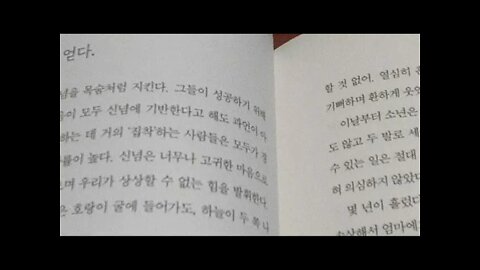 얻다.
념을 목숨처럼 지킨다. 그들이 성공하기 위해
들이 모두 신념에 기반한다고 해도 과언이 아
하는 데 거의 ‘집착’하는 사람들은 모두가 경
률이 높다. 신념은 너무나 고귀한 마음으로
으며 우리가 상상할 수 없는 힘을 발휘한다.
은 호랑이 굴에 들어가도, 하늘이 두 쪽 나
할 것 없어. 열심히
기뻐하며 환하게 웃었
이날부터 소년은
도 않고 두 발로 세
수 있는 일은 절대
혀 의심하지 않았다
몇 년이 흘렀다
속상해서 엄마에